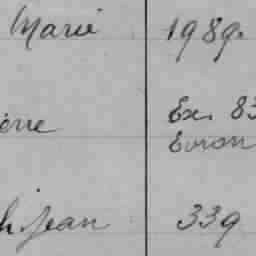 Marie 1989.
Ex. 83
Evron
h. Jean 339